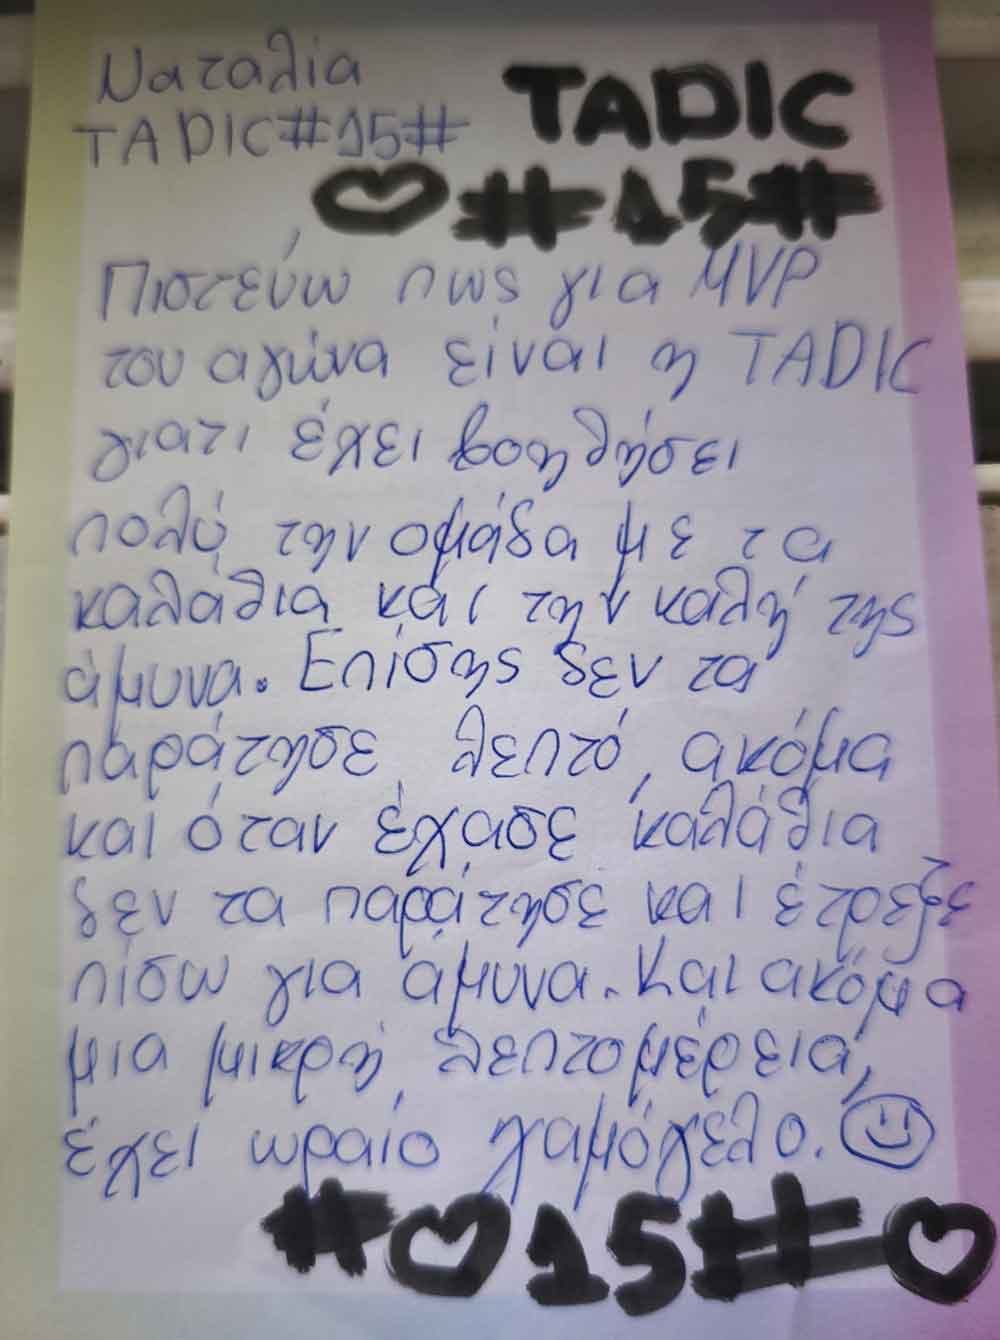 Ναταλία
TADIC#15#
TADIC
♡#15#
Πιστεύω πως για MVP
του αγώνα είναι η TADIC
γιατι έχει βοηθήσει
πολύ την ομάδα με τα
καλάθια και την καλή της
άμυνα. Επίσης δεν τα
παράτησε λεπτό, ακόμα
και όταν έχασε καλάθια
δεν τα παράτησε και έτρεξε
πίσω για άμυνα. Και ακόμα
μια μικρή λεπτομέρεια,
έχει ωραίο χαμόγελο. ☺
#♡15#♡